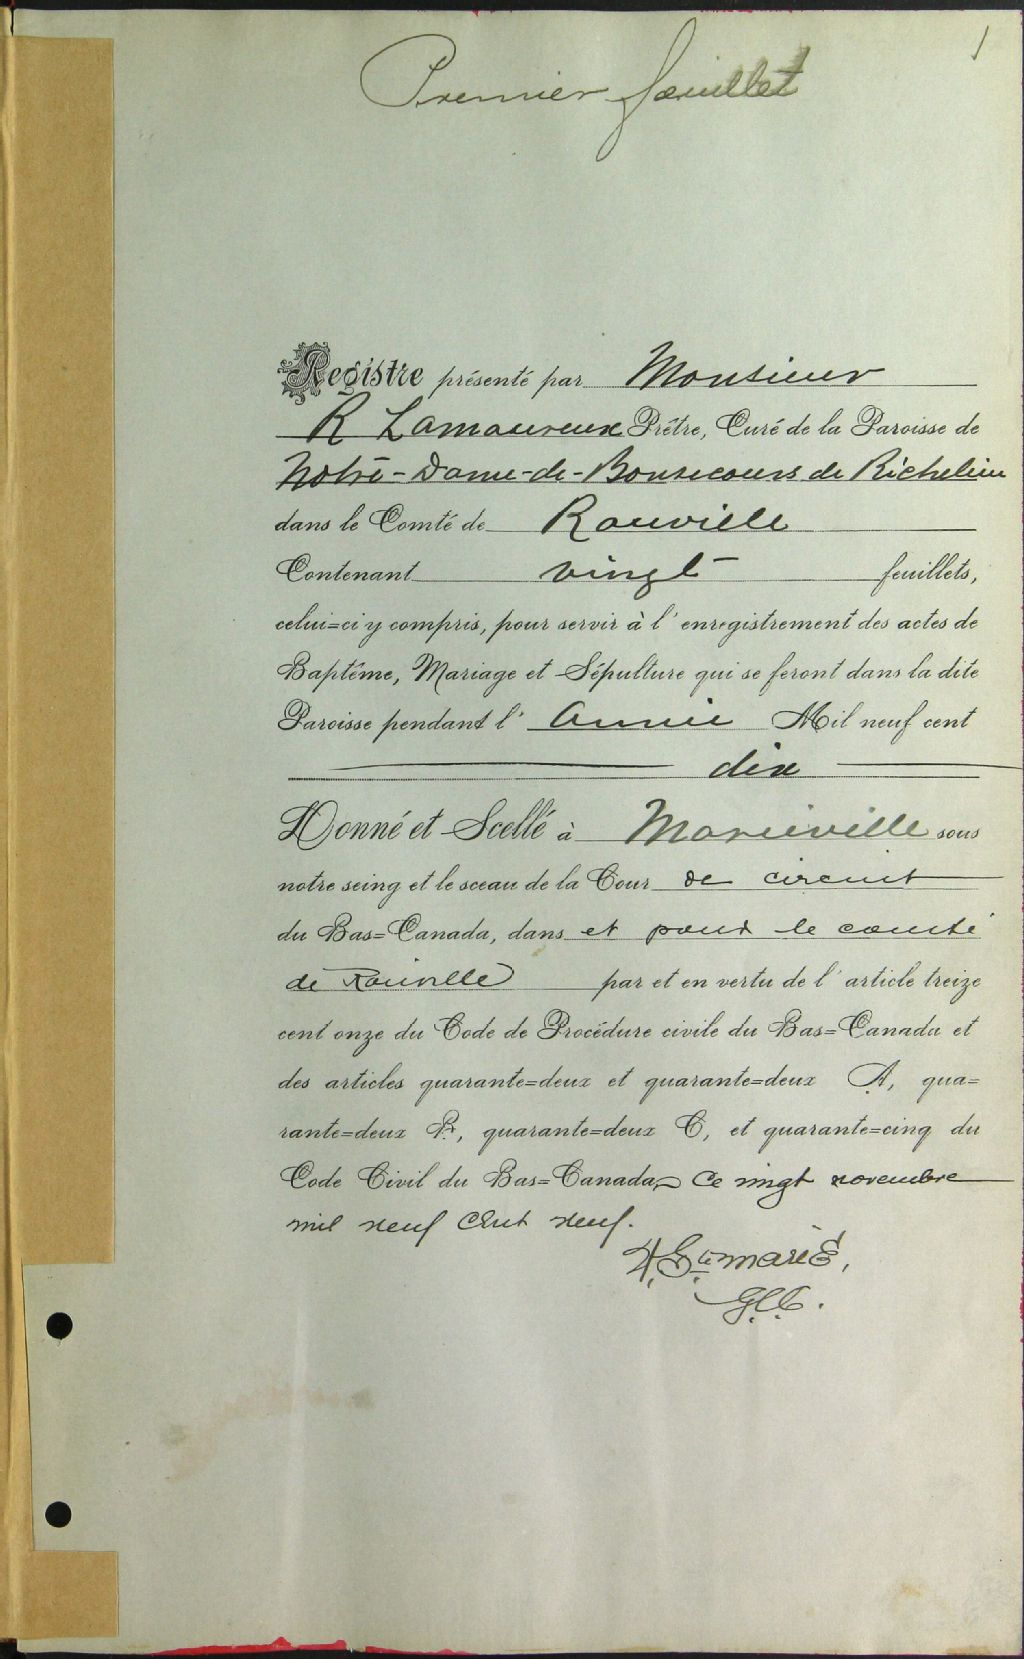 1
Premier feuillet
Registre présenté par Monsieur
R Lamoureux Prêtre, Curé de la Paroisse de
Notre-Dame-de-Bonsecours de Richelieu
dans le Comté de Rouville
Contenant vingt feuillets,
celui=ci y compris, pour servir à l'enregistrement des actes de
Baptême, Mariage et Sépulture qui se feront dans la dite
Paroisse pendant l'Année Mil neuf cent
dix
Donné et Scellé à Marieville sous
notre seing et le sceau de la Cour de circuit
du Bas=Canada, dans et pour le comté
de Rouville par et en vertu de l'article treize
cent onze du Code de Procédure civile du Bas=Canada et
des articles quarante=deux et quarante=deux A, qua=
rante=deux B, quarante=deux C, et quarante=cinq du
Code Civil du Bas=Canada, Ce vingt novembre
mil neuf cent neuf.
Ste marie,
G.C.C.